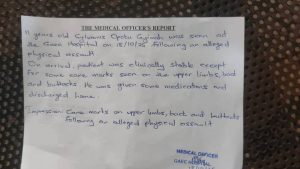 THE MEDICAL OFFICER'S REPORT
11 years old Sylvanus Opoku Gyimah was seen at
the Gaec Hospital on 15/10/25 following an alleged
physical assault
On arrival, patient was clinically stable except
for some cane marks seen on the upper limbs, back
and buttocks. He was given some medications and
discharged home.
Impression: Cane marks on upper limbs, back and buttocks
following an alleged physical assault
MEDICAL OFFICER
GAEC HOSPITAL